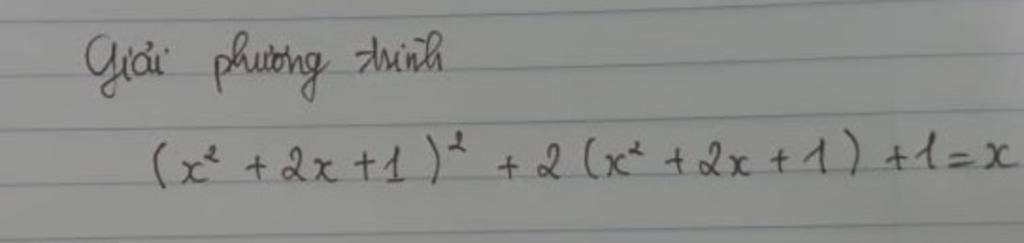 Giải phương trình
(x² + 2x + 1)² + 2(x² + 2x + 1) + 1 = x